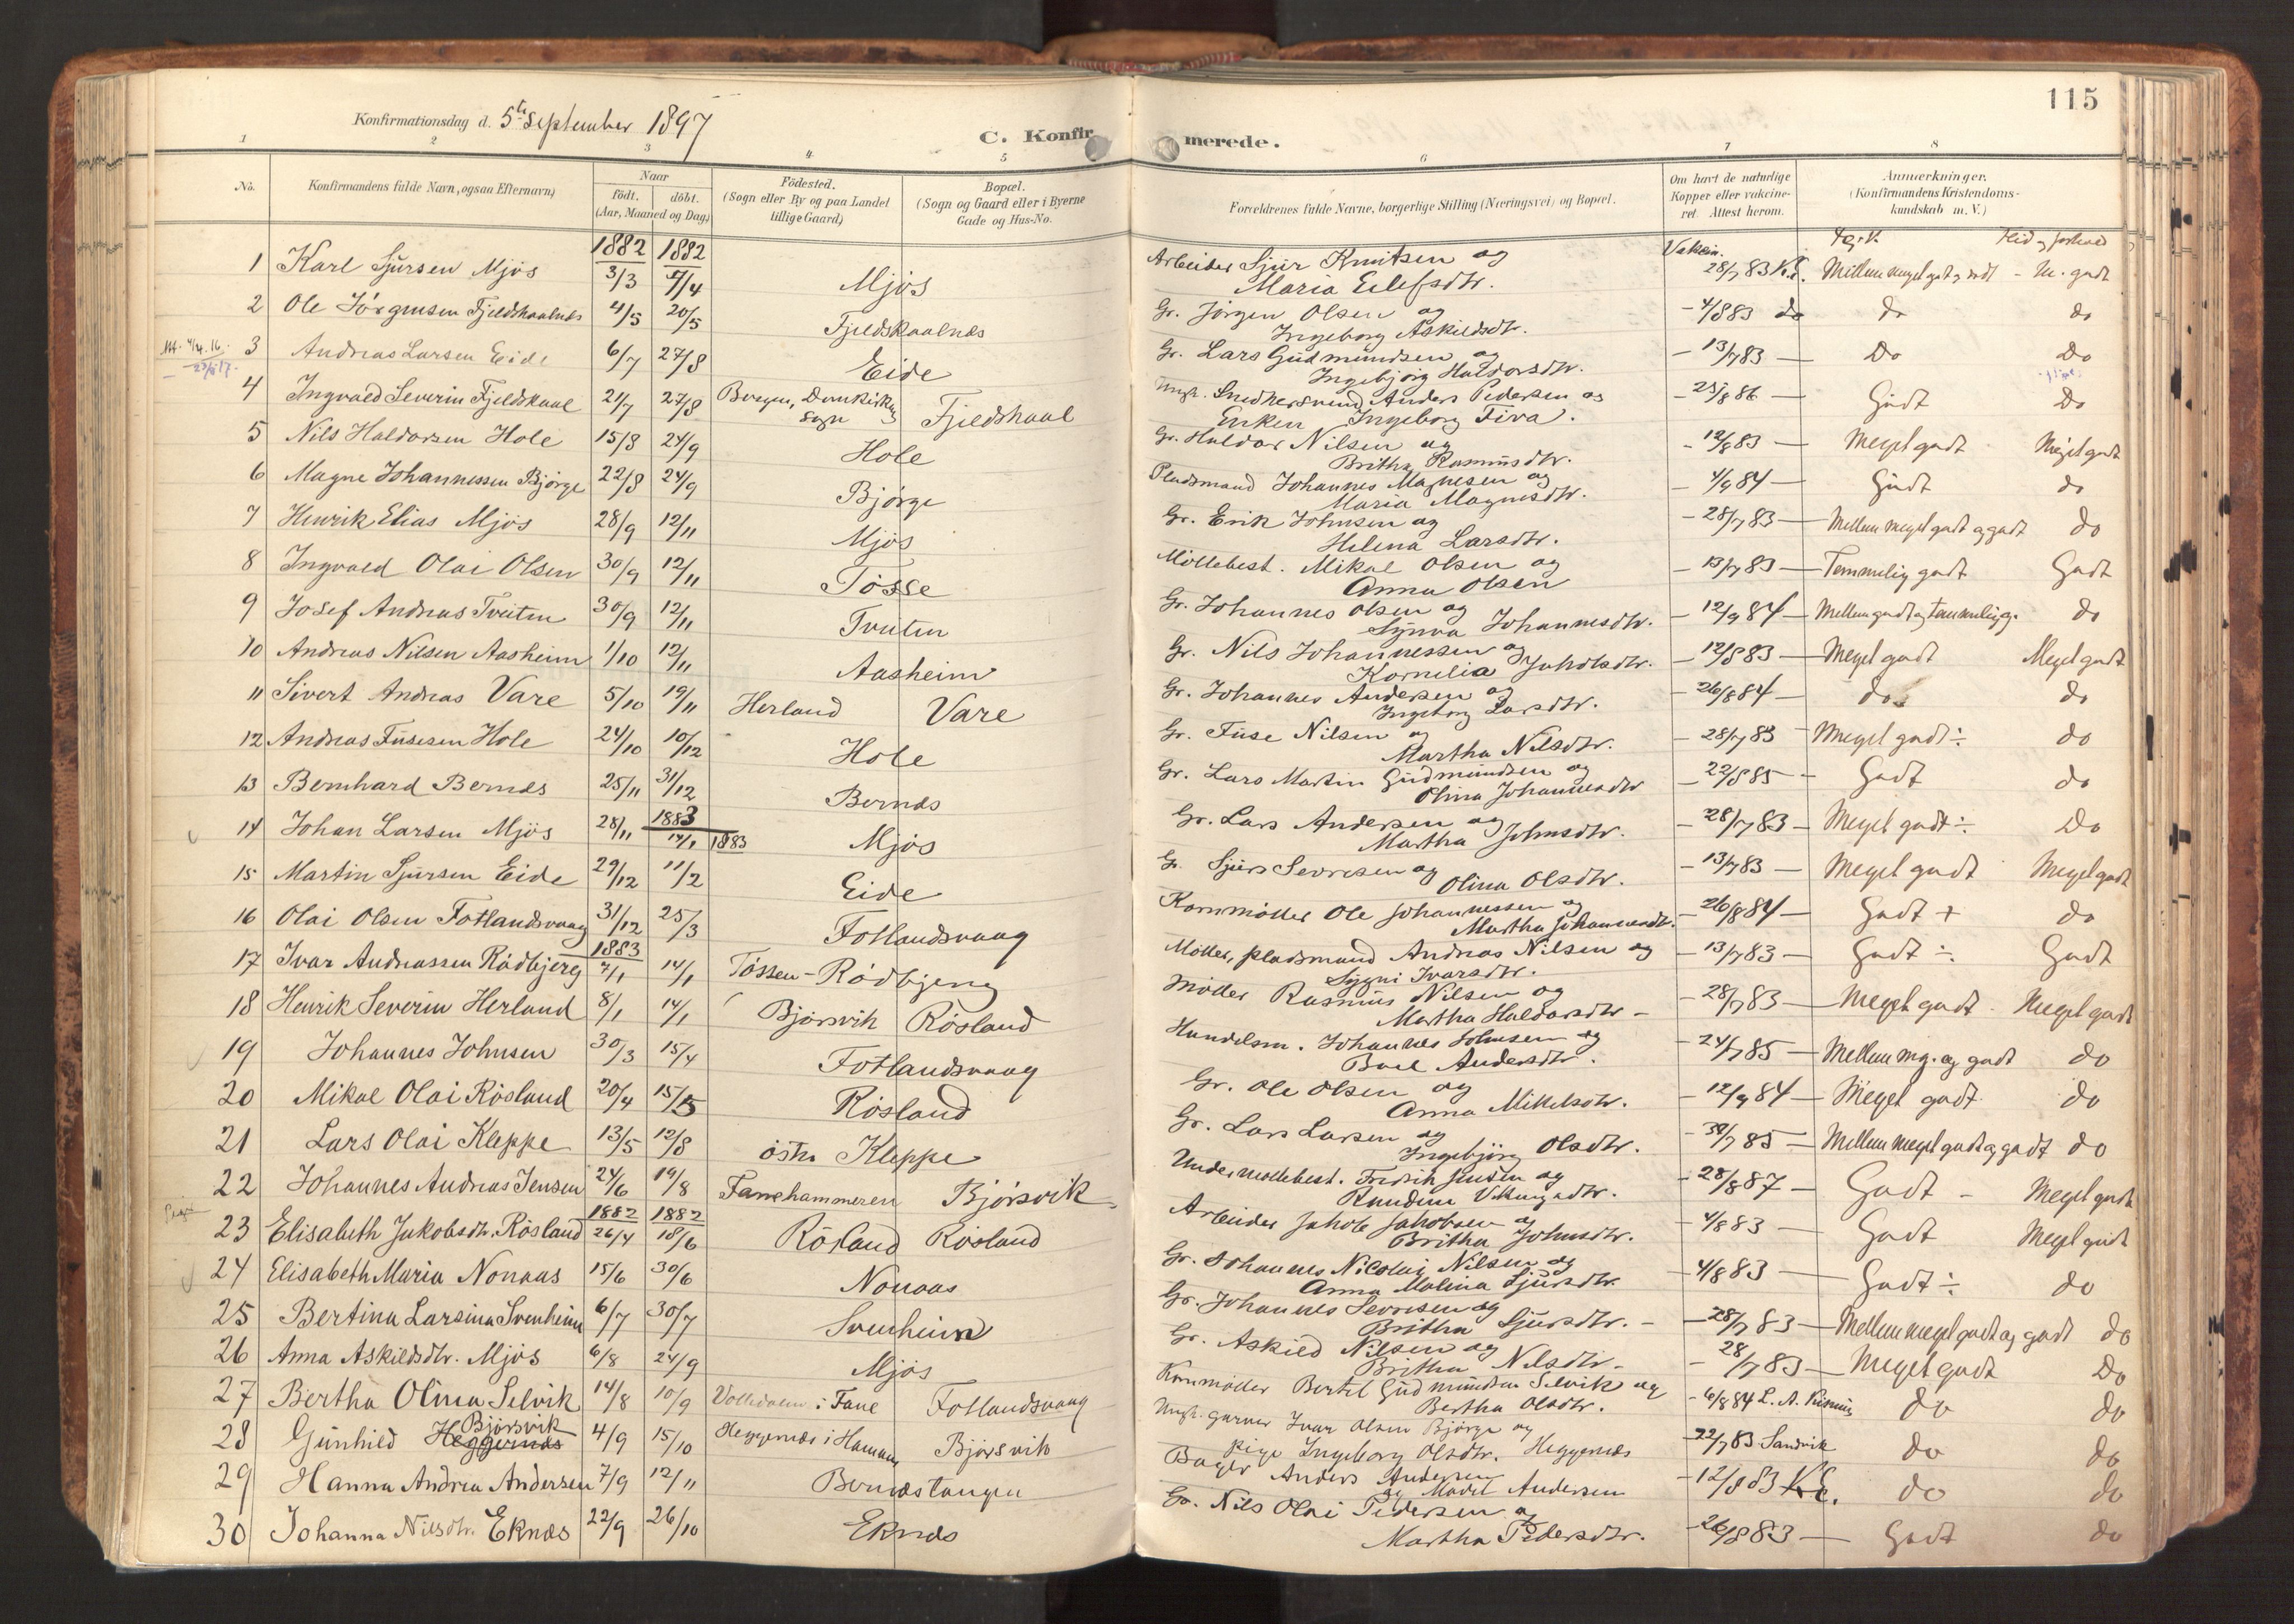 115
Konfirmationsdag d. 5te September 1897
C. Konfir merede.
1 2 3 4 5 6 7 8
No. Konfirmandens fulde Navn, ogsaa Efternavn) Naar Födested. Bopæl. Forældrenes fulde Navne, borgerlige Stilling (Næringsvei) og Bopæl. Om havt de naturlige Anmærkninger.
födt. döbt. (Sogn eller By og paa Landet (Sogn og Gaard eller i Byerne Kopper eller vakcine- (Konfirmandens Kristendoms-
(Aar, Maaned og Dag) tillige Gaard) Gade og Hus-No. ret. Attest herom. kundskab m. V.)
1882 1882 Vakcin. Flid og forhold
1 Karl Sjursen Mjös 3/3 4/4 Mjös Arbeider Sjur Knutsen og Maria Eilefsdtr. 28/7 83 K.E. Mellem meget godt og godt - M. godt
2 Ole Jörgensen Fjeldskaalnes 4/5 20/5 Fjeldskaalnæs Gr. Jörgen Olsen og Ingeborg Askildsdtr. - 4/8 83 do do do
3 Andreas Larsen Eide 6/7 27/8 Eide Gr. Lars Gudmundsen og Ingebjörg Haldorsdtr. - 13/7 83 - Do Do
4 Ingvald Severin Fjeldskaal 21/7 27/8 Bergen, Domkirkens sogn Fjeldskaal Ungk. Snedkersvend Anders Pedersen og Enken Ingeborg Fiva. - 25/8 86 - Godt Do
5 Nils Haldorsen Hole 15/8 24/9 Hole Gr. Haldor Nilsen og Britha Rasmusdtr. - 12/8 83 - Meget godt Meget godt
6 Magne Johannessen Björge 22/8 24/9 Björge Pladsmand Johannes Magnesen og Maria Magnesdtr. - 4/9 84 - Godt do
7 Henrik Elias Mjös 28/9 12/11 Mjös Gr. Erik Johnsen og Helena Larsdtr. - 28/7 83 - Mellem meget godt og godt do
8 Ingvald Olai Olsen 30/9 12/11 Tösse Möllebest. Mikal Olsen og Anna Olsen - 13/7 83 - Temmelig godt Godt
9 Josef Andreas Tveiten 30/9 12/11 Tveiten Gr. Johannes Olsen og Synva Johannesdtr. - 12/9 84 - Mellem godt og temmelig g. do
10 Andreas Nilsen Aasheim 1/10 12/11 Aasheim Gr. Nils Johannessen og Kornelia Jakobsdtr. - 12/8 83 - Meget godt Meget godt
11 Sivert Andreas Vare 5/10 19/11 Herland Vare Gr. Johannes Andersen og Ingeborg Larsdtr. - 26/8 84 - do do
12 Andreas Fusesen Hole 24/10 10/12 Hole Gr. Fuse Nilsen og Martha Nilsdtr. - 28/7 83 - Meget godt ÷ do
13 Bernhard Bernes 25/11 31/12 Bernæs Gr. Lars Martin Gudmundsen og Olina Johannesdtr - 22/8 85 - Godt do
14 Johan Larsen Mjös 28/11 1883 14/1 1883 Mjös Gr. Lars Andersen og Martha Johnsdtr. - 28/7 83 - Meget godt ÷ Do
15 Martin Sjursen Eide 29/12 11/2 Eide Gr. Sjurs Sevresen og Olina Olsdtr. - 13/7 83 - Meget godt Meget godt
16 Olai Olsen Fotlandsvaag 31/12 25/3 Fotlandsvaag Kornmöller Ole Johannessen og Martha Johannesdtr. - 26/8 84 - Godt + do
1883
17 Ivar Andreassen Rödbjerg 7/1 14/1 Tössen - Rödbjerg Möller, pladsmand Andreas Nilsen og Sygni Ivarsdtr. - 13/7 83 - Godt ÷ Godt
18 Henrik Severin Herland 8/1 14/1 Björsvik Rösland Möller Rasmus Nilsen og Martha Haldorsdtr - - 28/7 83 - Meget godt Meget godt
19 Johannes Johnsen 30/3 15/4 Fotlandsvaag Handelsm. Johannes Johnsen og Boel Andersdtr. - 24/7 85 - Mellem mg. og godt do
20 Mikal Olai Rösland 20/4 15/5 Rösland Gr. Ole Olsen og Anna Mikelsdtr. - 12/9 84 - Meget godt do
21 Lars Olai Kleppe 13/5 12/8 östr. Kleppe Gr. Lars Larsen og Ingebjörg Olsdtr. - 30/7 85 - Mellem meget godt og godt do
22 Johannes Andreas Jensen 24/6 19/8 Fanehammeren Björsvik Undermöllebest. Fredrik Jensen og Randine Vikingsdtr. - 28/8 87 - Godt - Meget godt
1882 1882
23 Elisabeth Jakobsdtr. Rösland 26/4 18/6 Rösland Rösland Arbeider Jakob Jakobsen og Britha Johnsdtr. - 4/8 83 - Godt Meget godt
24 Elisabeth Maria Nonaas 15/6 30/6 Nonaas Gr. Johannes Nicolai Nilsen og Anna Malina Sjursdtr. - 4/8 83 - Godt ÷ do
25 Bertina Larsina Svenheim 6/7 30/7 Svenheim Gr. Johannes Sevresen og Britha Sjursdtr. - - 28/7 83 - Mellem meget godt og godt do
26 Anna Askildsdtr. Mjös 6/8 24/9 Mjös Gr. Askild Nilsen og Britha Nilsdtr. - 28/7 83 - Meget godt Do
27 Bertha Olina Selvik 14/8 10/9 i Fane Fotlandsvaag Kornmöller Bertel Gudmundsen Selvik og Bertha Olsdtr. - 6/8 84 L. A. do do
28 Gunhild Heggernæs Björsvik 4/9 15/10 Heggernæs i Hammer Björsvik Ungk. garver Ivar Olsen Björge og pige Ingeborg Olsdtr. Heggernæs - 22/7 83 Sandvik do do
29 Hanna Andrea Andersen 7/9 12/11 Bernæstangen Bager Anders Andersen og Madel Andersen - 12/8 83 K.E. do do
30 Johanna Nilsdtr. Eknæs 22/9 26/10 Eknæs Gr. Nils Olai Pedersen og Martha Pedersdtr. - 26/8 83 - Godt do